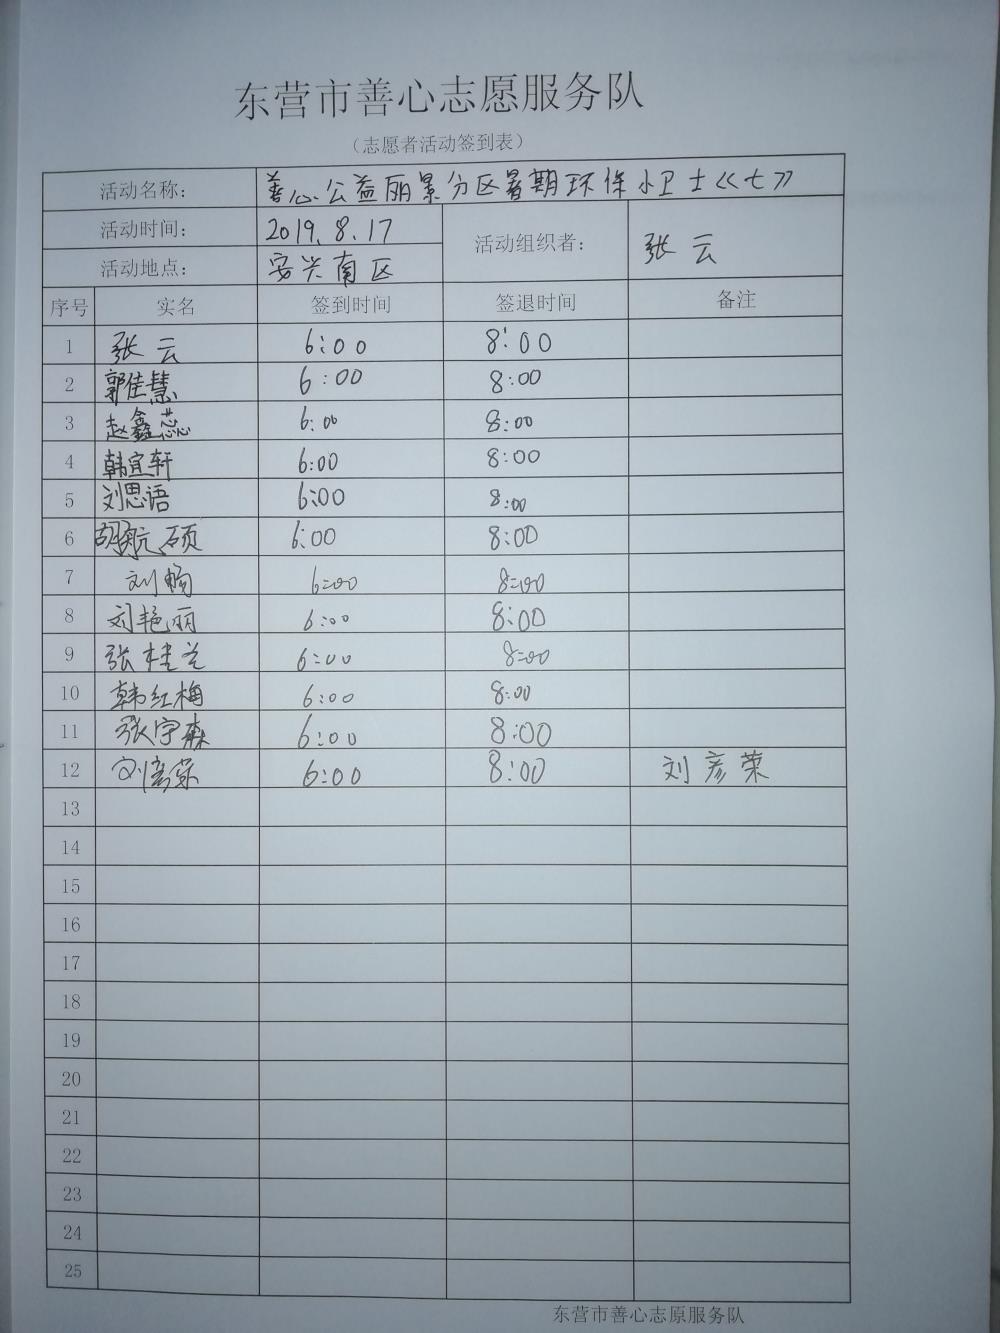 东营市善心志愿服务队
（志愿者活动签到表）
活动名称： 善心公益丽景分区暑期环保小卫士《七》
活动时间： 2019.8.17 活动组织者： 张云
活动地点： 安兴南区
序号 实名 签到时间 签退时间 备注
1 张云 6:00 8:00
2 郭佳慧 6:00 8:00
3 赵鑫蕊 6:00 8:00
4 韩宜轩 6:00 8:00
5 刘思语 6:00 8:00
6 胡航硕 6:00 8:00
7 刘畅 6:00 8:00
8 刘艳丽 6:00 8:00
9 张桂兰 6:00 8:00
10 韩红梅 6:00 8:00
11 张宇森 6:00 8:00
12 刘彦荣 6:00 8:00 刘彦荣
13
14
15
16
17
18
19
20
21
22
23
24
25
东营市善心志原服务队